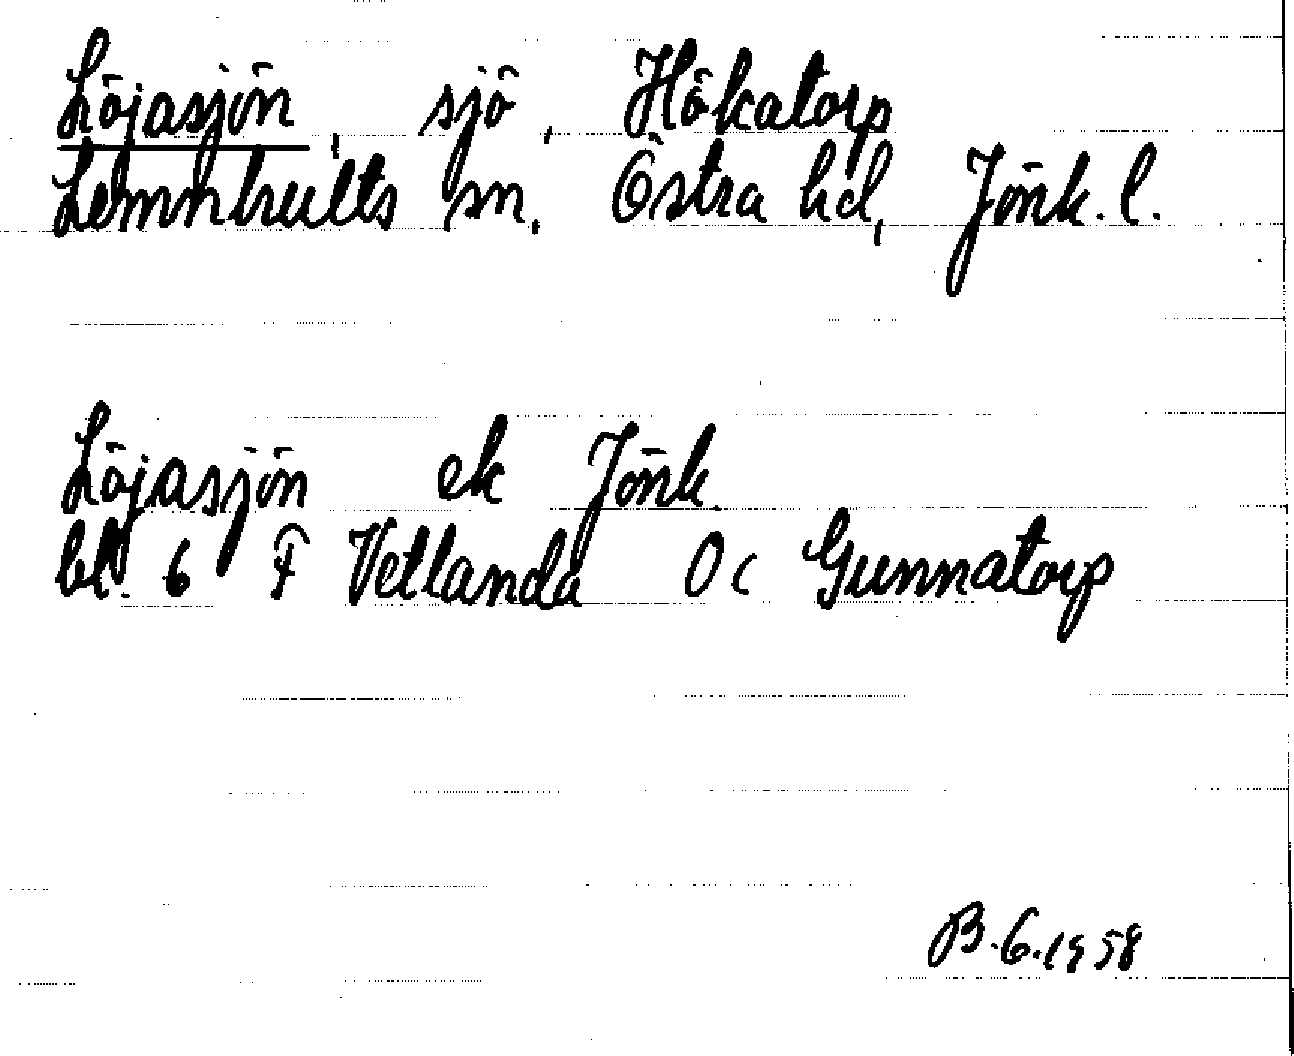 Löjasjön, sjö, Hökatorp
Lemnhults sn. Östra hd, Jönk. l.
Löjasjön ek Jönk.
bl. 6 F Vetlanda Oc Gunnatorp
B.6.1958